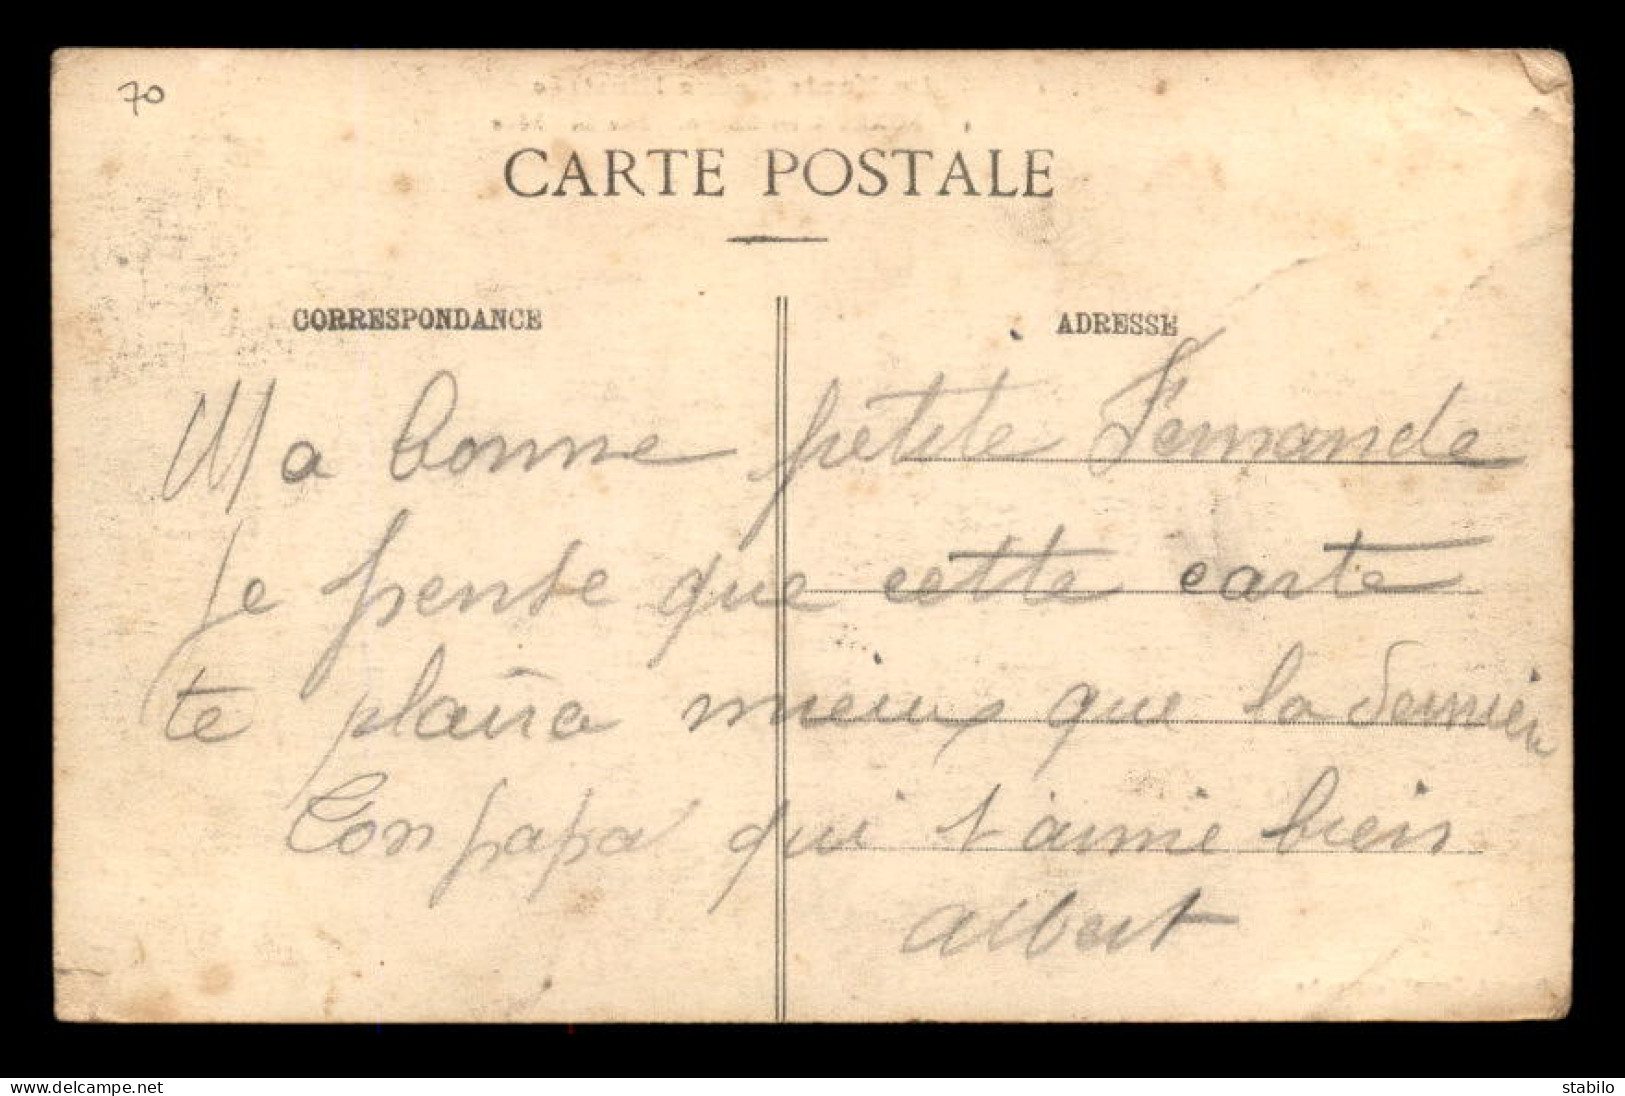 70
CARTE POSTALE
CORRESPONDANCE
ADRESSE
Ma bonne petite Fernande
Je pense que cette carte
te plaira mieux que la dernière
Ton papa qui t'aime bien
Albert
www.delcampe.net
stabilo